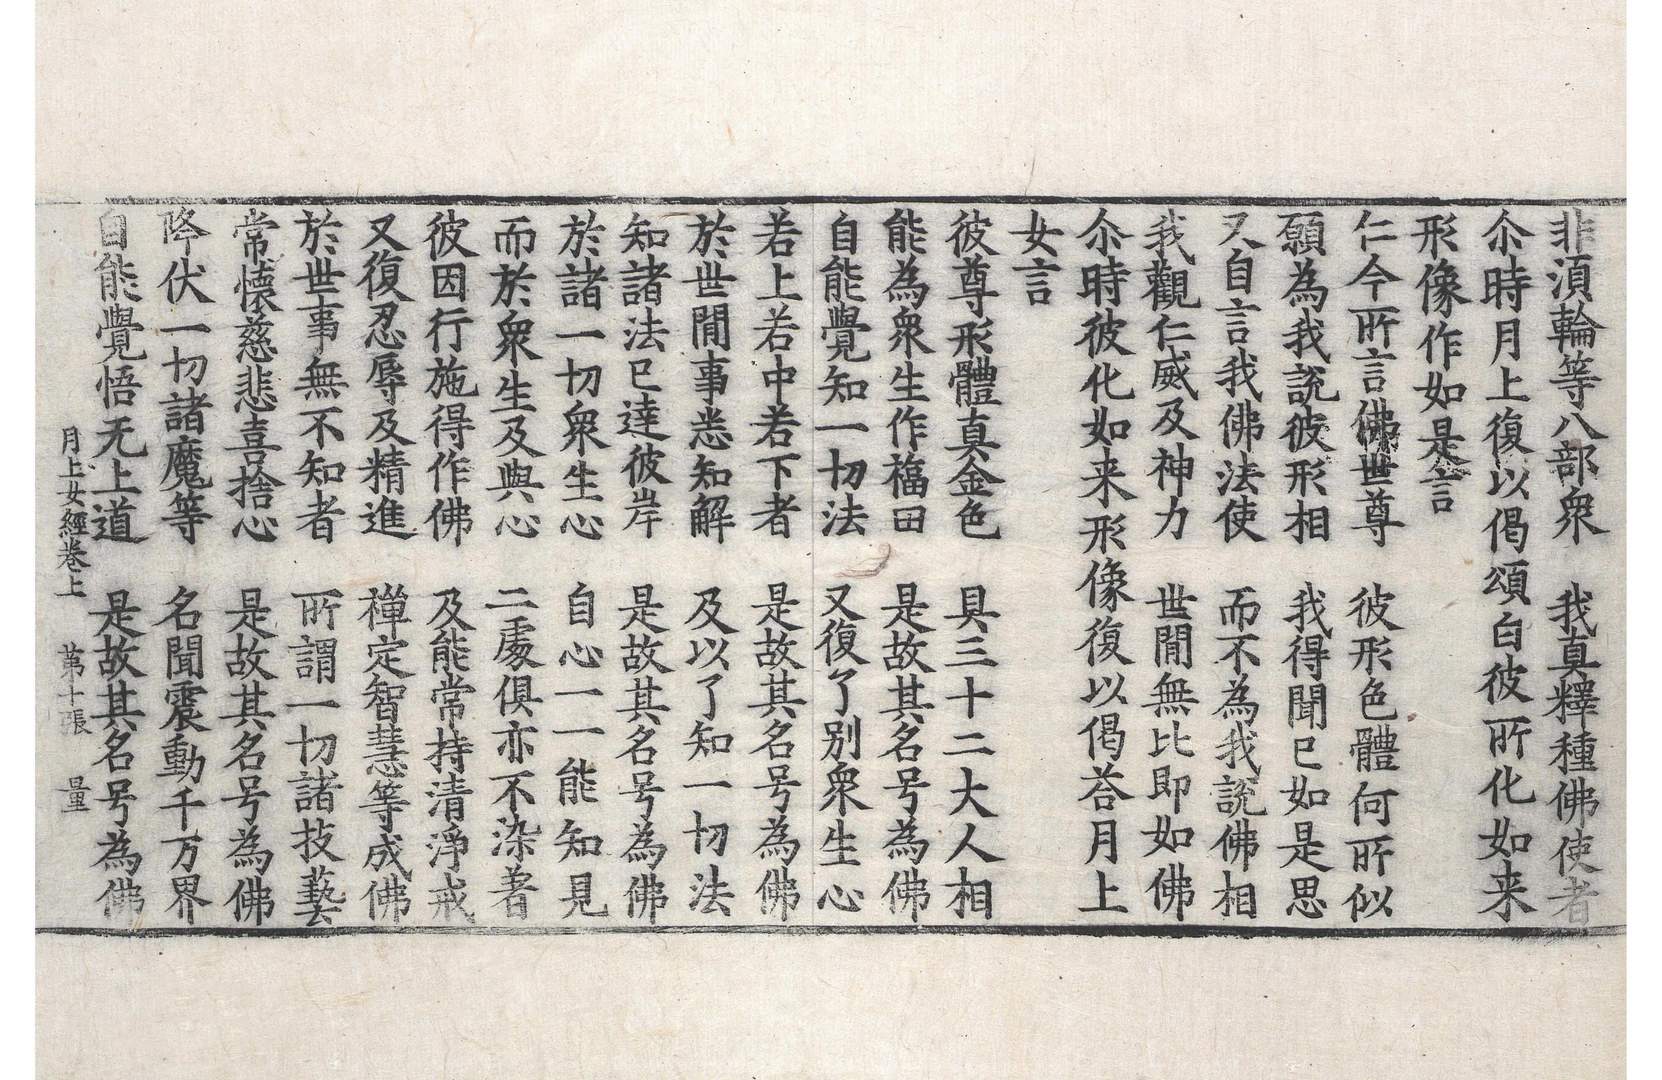 非湏輪等八部衆　我真釋種佛使者
尒時月上復以偈頌白彼所化如来
形像作如是言
仁今所言佛世尊　彼形色體何所似
願為我説彼形相　我得聞已如是思
又自言我佛法使　而不為我説佛相
我觀仁威及神力　世間無比即如佛
尒時彼化如来形像復以偈荅月上
女言
彼尊形體真金色　具三十二大人相
能為衆生作福田　是故其名号為佛
自能覺知一切法　又復了別衆生心
若上若中若下者　是故其名号為佛
於世間事悉知解　及以了知一切法
知諸法已達彼岸　是故其名号為佛
於諸一切衆生心　自心一一能知見
而於衆生及與心　二處俱亦不染著
彼因行施得作佛　及能常持清淨戒
又復忍辱及精進　禪定智慧等成佛
於世事無不知者　所謂一切諸技藝
常懷慈悲喜捨心　是故其名号為佛
降伏一切諸魔等　名聞震動千万界
自能覺悟无上道　是故其名号為佛
月上女經卷上　第十張　量